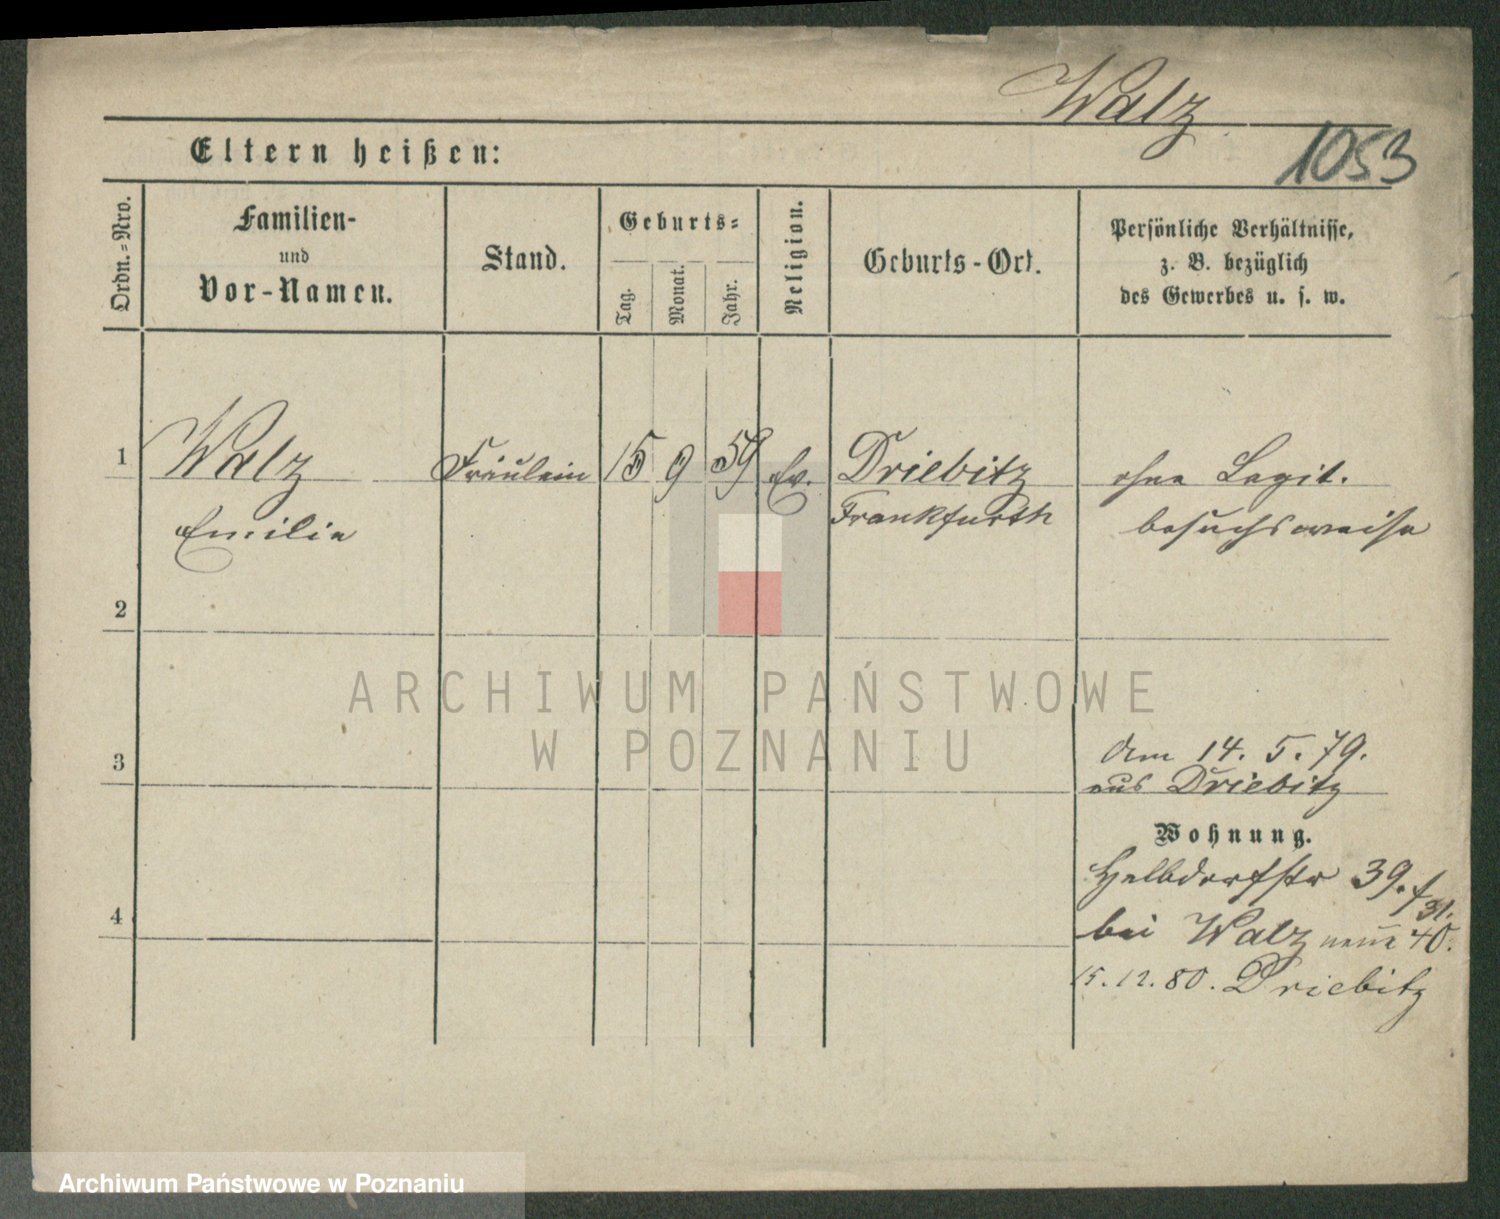 Walz
1053
Eltern heißen:
Ordn.=Nro.
Familien-
und
Vor-Namen.
Stand.
Geburts=
Tag.
Monat.
Jahr.
Religion.
Geburts-Ort.
Persönliche Verhältnisse,
z. B. bezüglich
des Gewerbes u. s. w.
1
Walz
Emilie
Fräulein
15
9
59
Ev.
Driebitz
Frankfurth
ohne Legit.
besuchsweise
2
ARCHIWUM PAŃSTWOWE
W POZNANIU
3
den 14. 5. 79.
aus Driebitz
Wohnung.
Halbdorfstr 39.
31.
4
bei Walz neue 40.
15. 12. 80. Driebitz
Archiwum Państwowe w Poznaniu